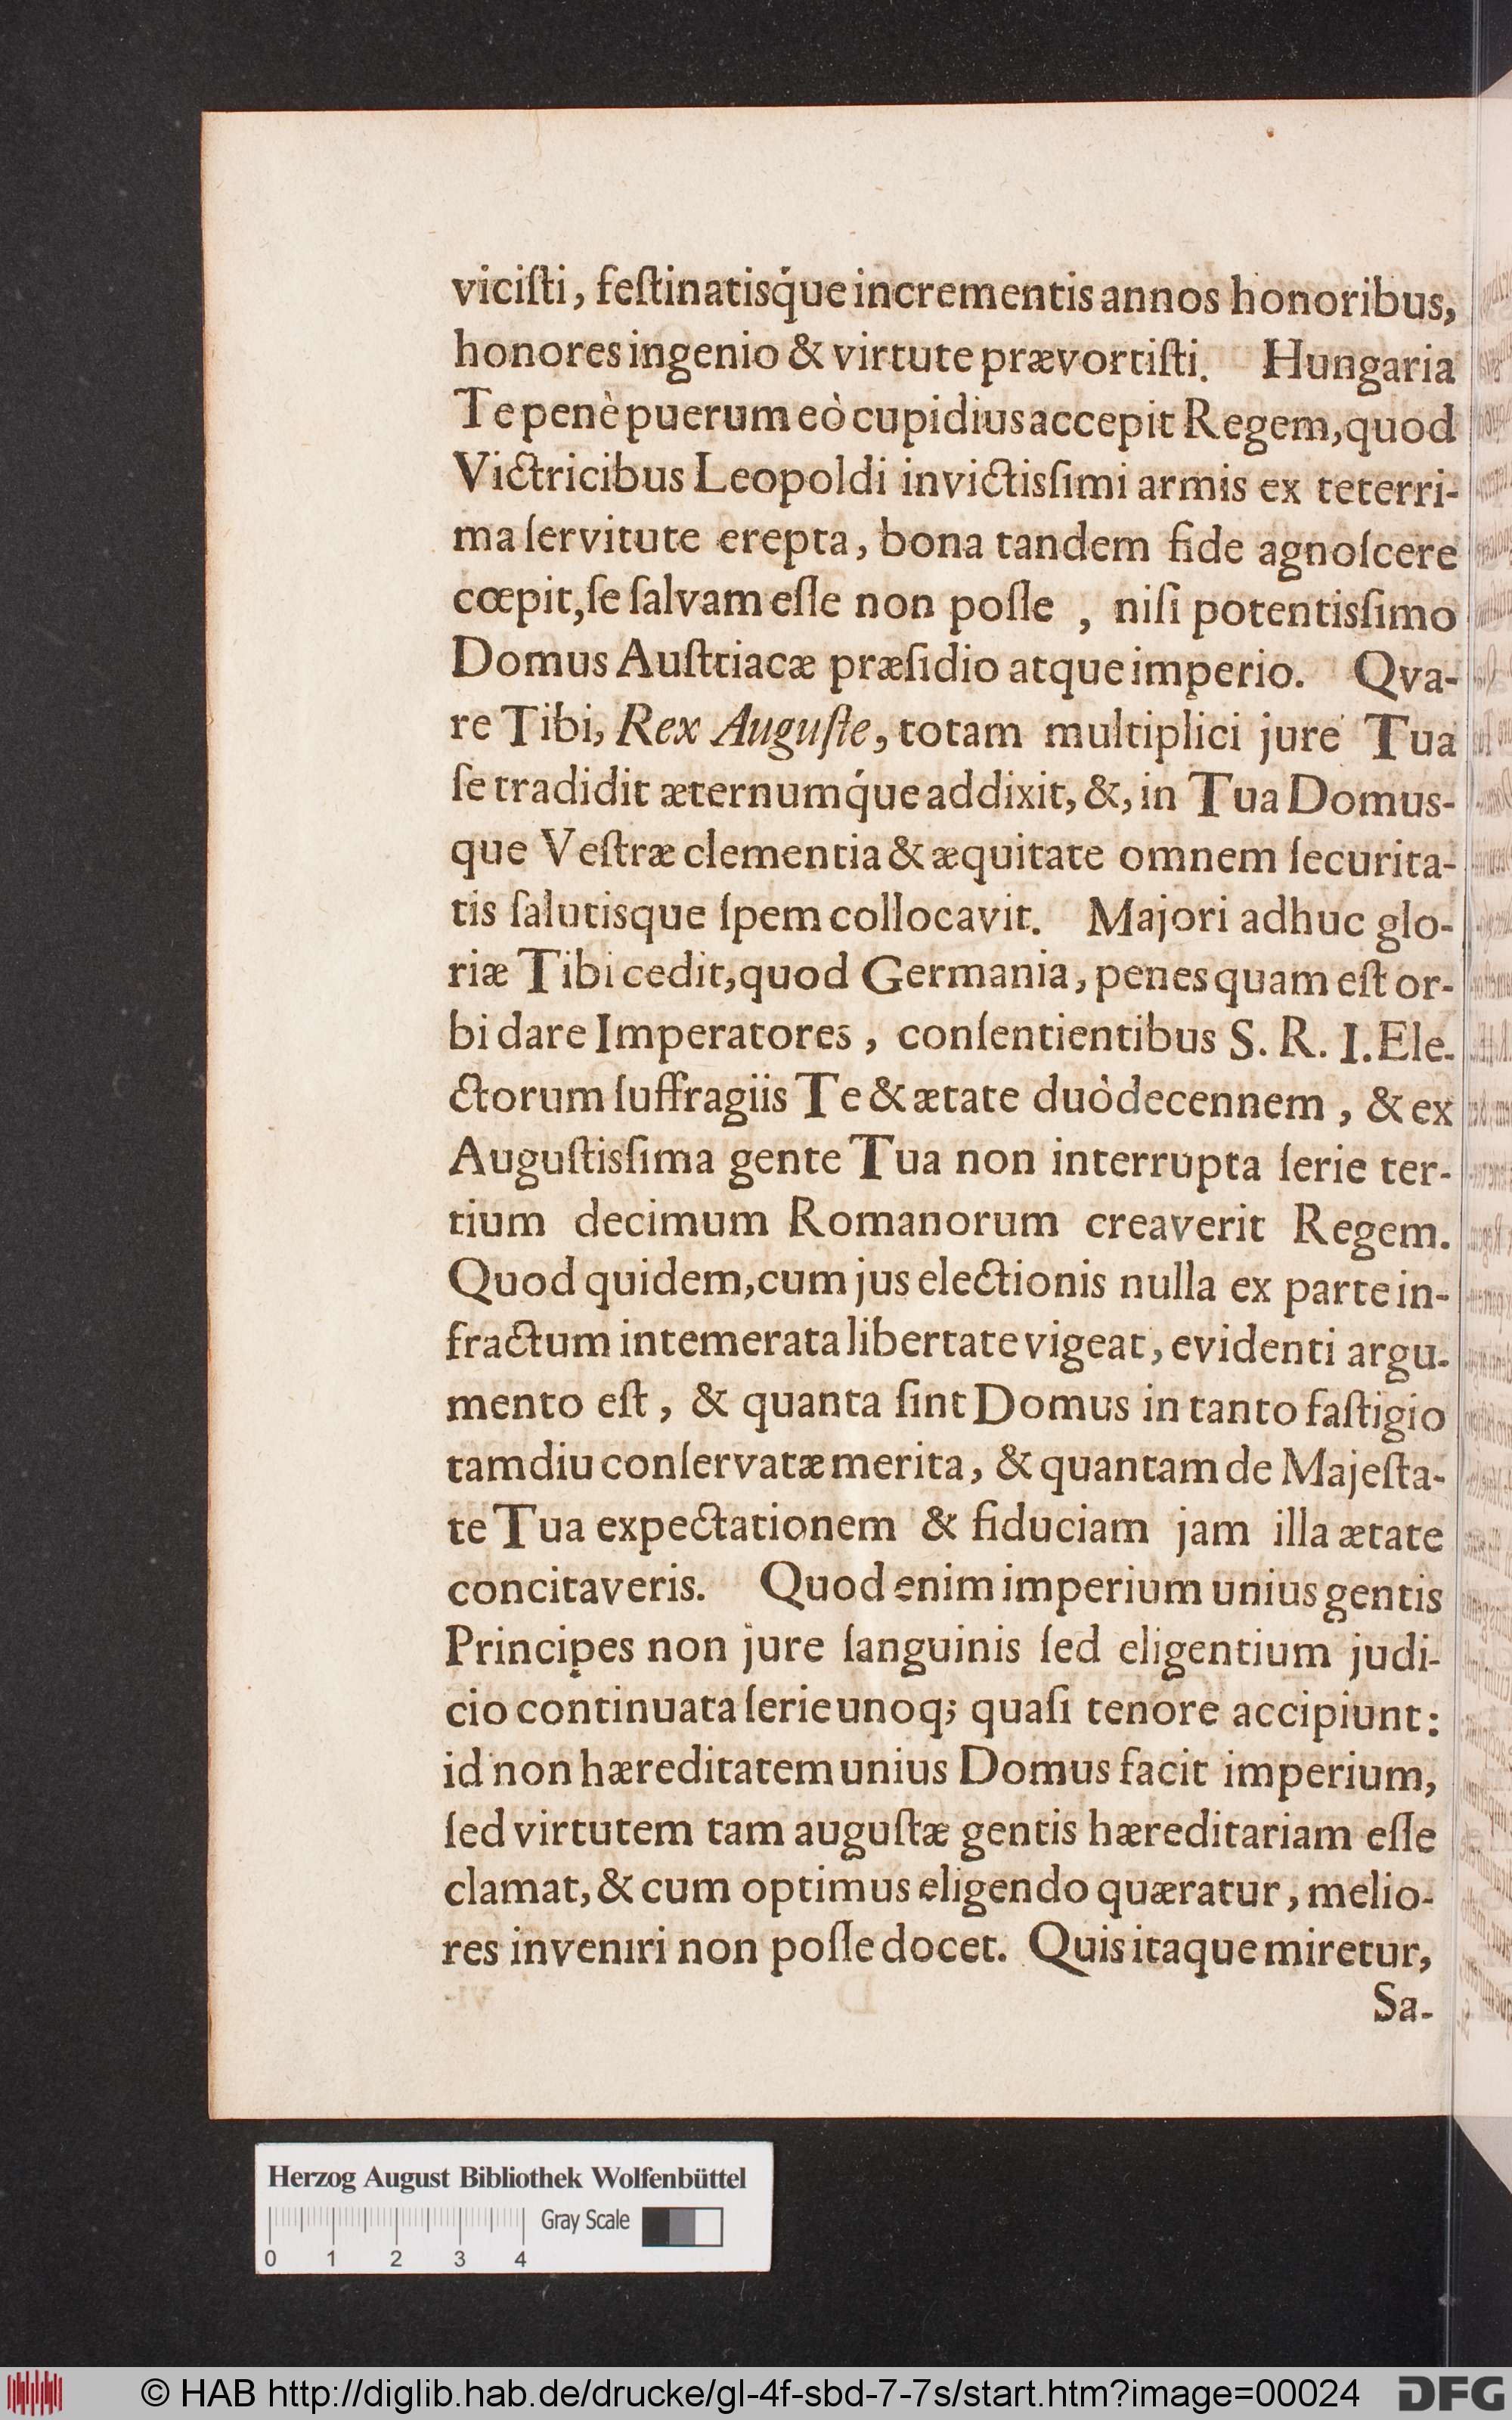 viciſti, feſtinatisq́ue incrementis annos honoribus,
honores ingenio & virtute prævortiſti. Hungaria
Te penè puerum eò cupidius accepit Regem, quod
Victricibus Leopoldi invictisſimi armis ex teterri-
ma ſervitute erepta, bona tandem fide agnoſcere
cœpit, ſe ſalvam eſſe non poſſe , niſi potentisſimo
Domus Auſtriacæ præſidio atque imperio. Qva-
re Tibi, Rex Auguſte, totam multiplici jure Tua
ſe tradidit æternumq́ue addixit, &, in Tua Domus-
que Veſtræ clementia & æquitate omnem ſecurita-
tis ſalutisque ſpem collocavit. Majori adhuc glo-
riæ Tibi cedit, quod Germania, penes quam eſt or-
bi dare Imperatores , conſentientibus S. R. I. Ele-
ctorum ſuffragiis Te & ætate duòdecennem , & ex
Auguſtisſima gente Tua non interrupta ſerie ter-
tium decimum Romanorum creaverit Regem.
Quod quidem, cum jus electionis nulla ex parte in-
fractum intemerata libertate vigeat, evidenti argu-
mento eſt , & quanta ſint Domus in tanto faſtigio
tamdiu conſervatæ merita, & quantam de Majeſta-
te Tua expectationem & fiduciam jam illa ætate
concitaveris. Quod enim imperium unius gentis
Principes non jure ſanguinis ſed eligentium judi-
cio continuata ſerie unoq; quaſi tenore accipiunt:
id non hæreditatem unius Domus facit imperium,
ſed virtutem tam auguſtæ gentis hæreditariam eſſe
clamat, & cum optimus eligendo quæratur, melio-
res inveniri non poſſe docet. Quis itaque miretur,
Sa-
Herzog August Bibliothek Wolfenbüttel
Gray Scale
0 1 2 3 4
© HAB http://diglib.hab.de/drucke/gl-4f-sbd-7-7s/start.htm?image=00024
DFG